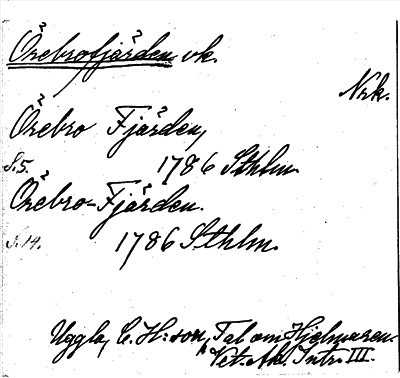 Örebrofjärden vk.
Nrk.
Örebro Fjärden,
S.5. 1786 Sthlm.
Örebro-Fjärden.
S.14. 1786 Sthlm.
Uggla, C. H:son, Tal om Hjelmaren.
Vet. Ak. Intr. III.